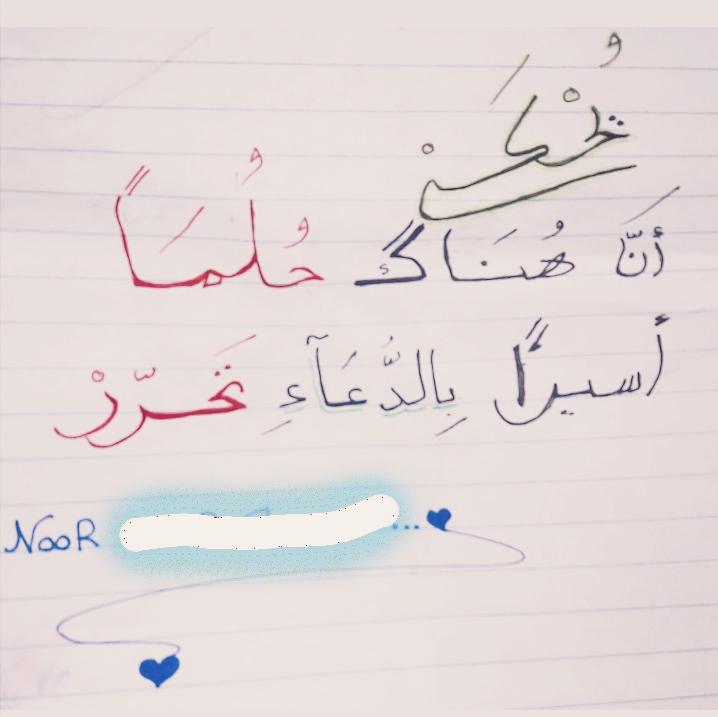 أَنّ هُنَاكَ حُلُمَاً
أسيراً بِالدُّعَآءِ تَحَرّرْ
NooR ...